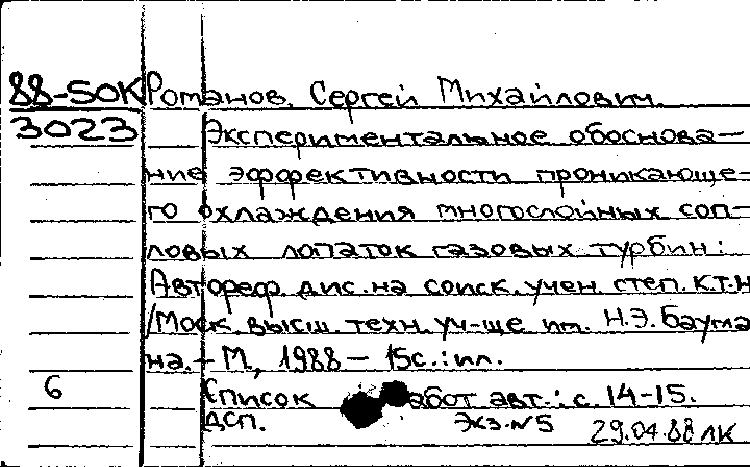 88-50К Романов, Сергей Михайлович.
3023 Экспериментальное обоснова-
ние эффективности проникающе-
го охлаждения многослойных соп-
ловых лопаток газовых турбин:
Автореф. дис. на соиск. учен. степ. к.т.н
/Моск. высш. техн. уч-ще им. Н.Э. Баума
на. - М, 1988 - 15с.: ил.
6 Список работ авт.: с. 14-15.
ДСП. Экз. №5 29.04.88 ЛК